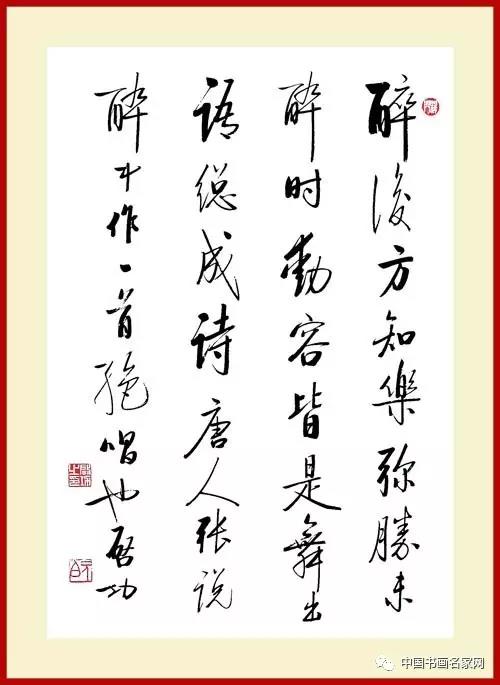 醉後方知樂弥勝未
醉时動容皆是舞出
语总成诗唐人张说
醉中作一首绝唱也启功
中国书画名家网